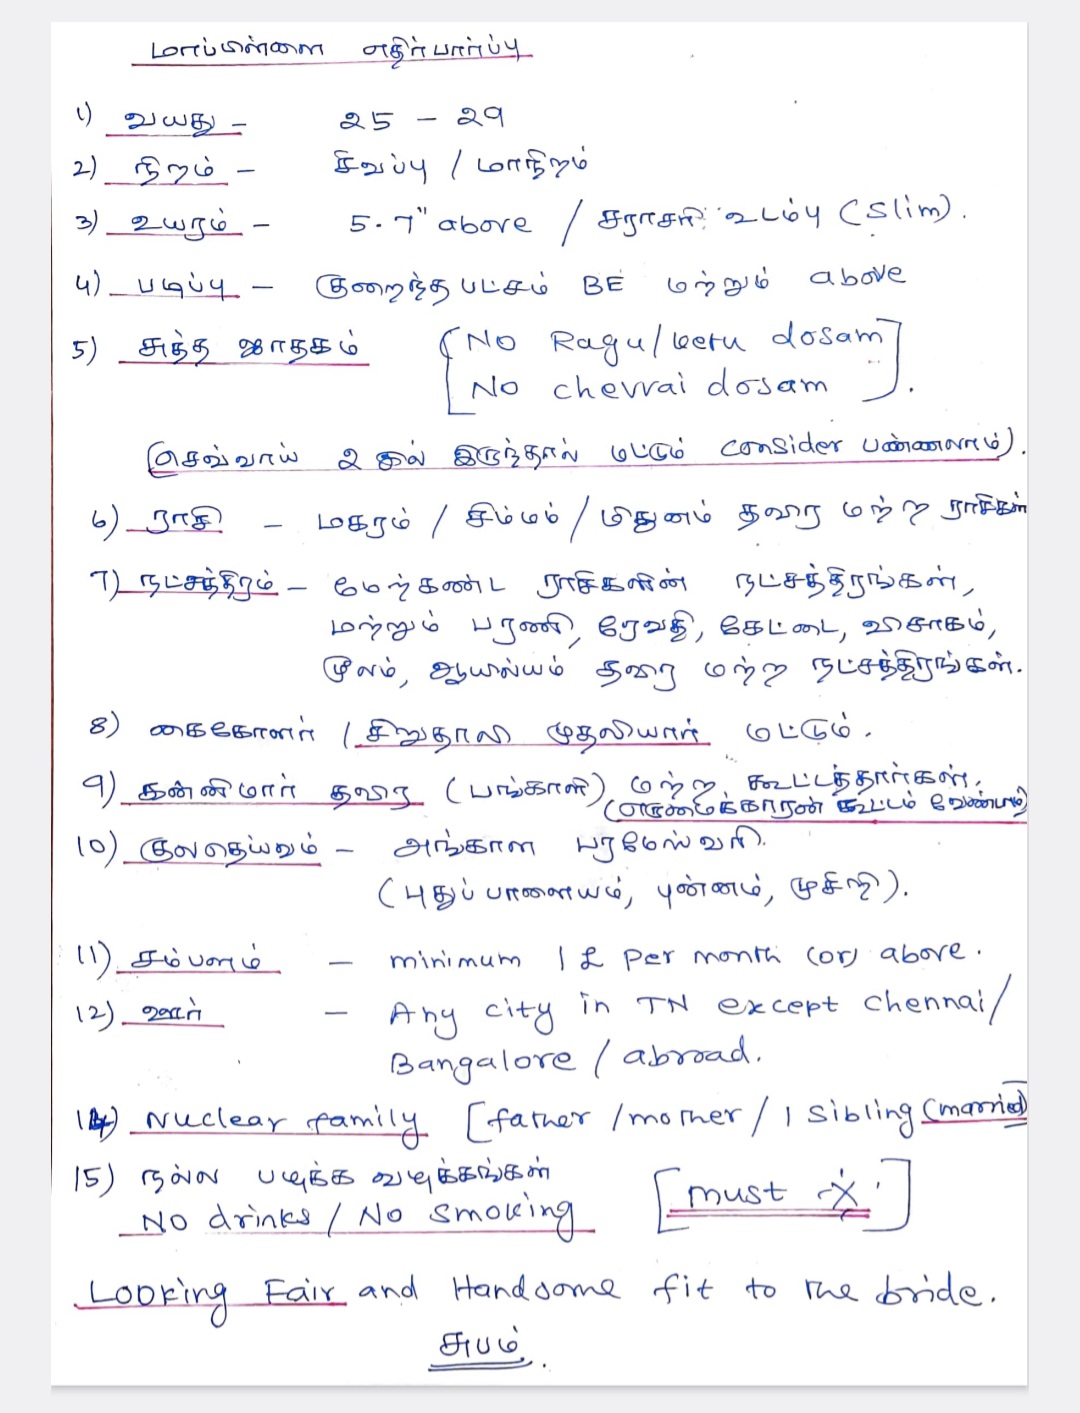 மாப்பிள்ளை எதிர்பார்ப்பு
1) வயது - 25 - 29
2) நிறம் - சிவப்பு / மாநிறம்
3) உயரம் - 5.7" above / சராசரி உடம்பு (Slim).
4) படிப்பு - குறைந்தபட்சம் BE மற்றும் above
5) சுத்த ஜாதகம் [No Ragu/keru dosam
No chevvai dosam].
(செவ்வாய் 2 இல் இருந்தால் மட்டும் consider பண்ணலாம்).
6) ராசி - மகரம் / சிம்மம் / மிதுனம் தவிர மற்ற ராசிகள்
7) நட்சத்திரம் - மேற்கண்ட ராசிகளின் நட்சத்திரங்கள்,
மற்றும் பரணி, ரேவதி, கேட்டை, விசாகம்,
மூலம், ஆயில்யம் தவிர மற்ற நட்சத்திரங்கள்.
8) கைகோளர் / சிறுதாலி முதலியார் மட்டும்.
9) கன்னிமார் தவிர (பங்காளி) மற்ற கூட்டத்தார்கள்.
(எருமைக்காரன் கூட்டம் வேண்டாம்)
10) குலதெய்வம் - அங்காள பரமேஸ்வரி.
(புதுப்பாளையம், புன்னம், முசிறி).
11) சம்பளம் - minimum 1 L per month (or) above.
12) ஊர் - Any city in TN except chennai/
Bangalore / abroad.
14) Nuclear family [father / mother / 1 sibling (married)
15) நல்ல பழக்க வழக்கங்கள்
No drinks / No smoking [must]
Looking Fair and Handsome fit to the bride.
சுபம்.